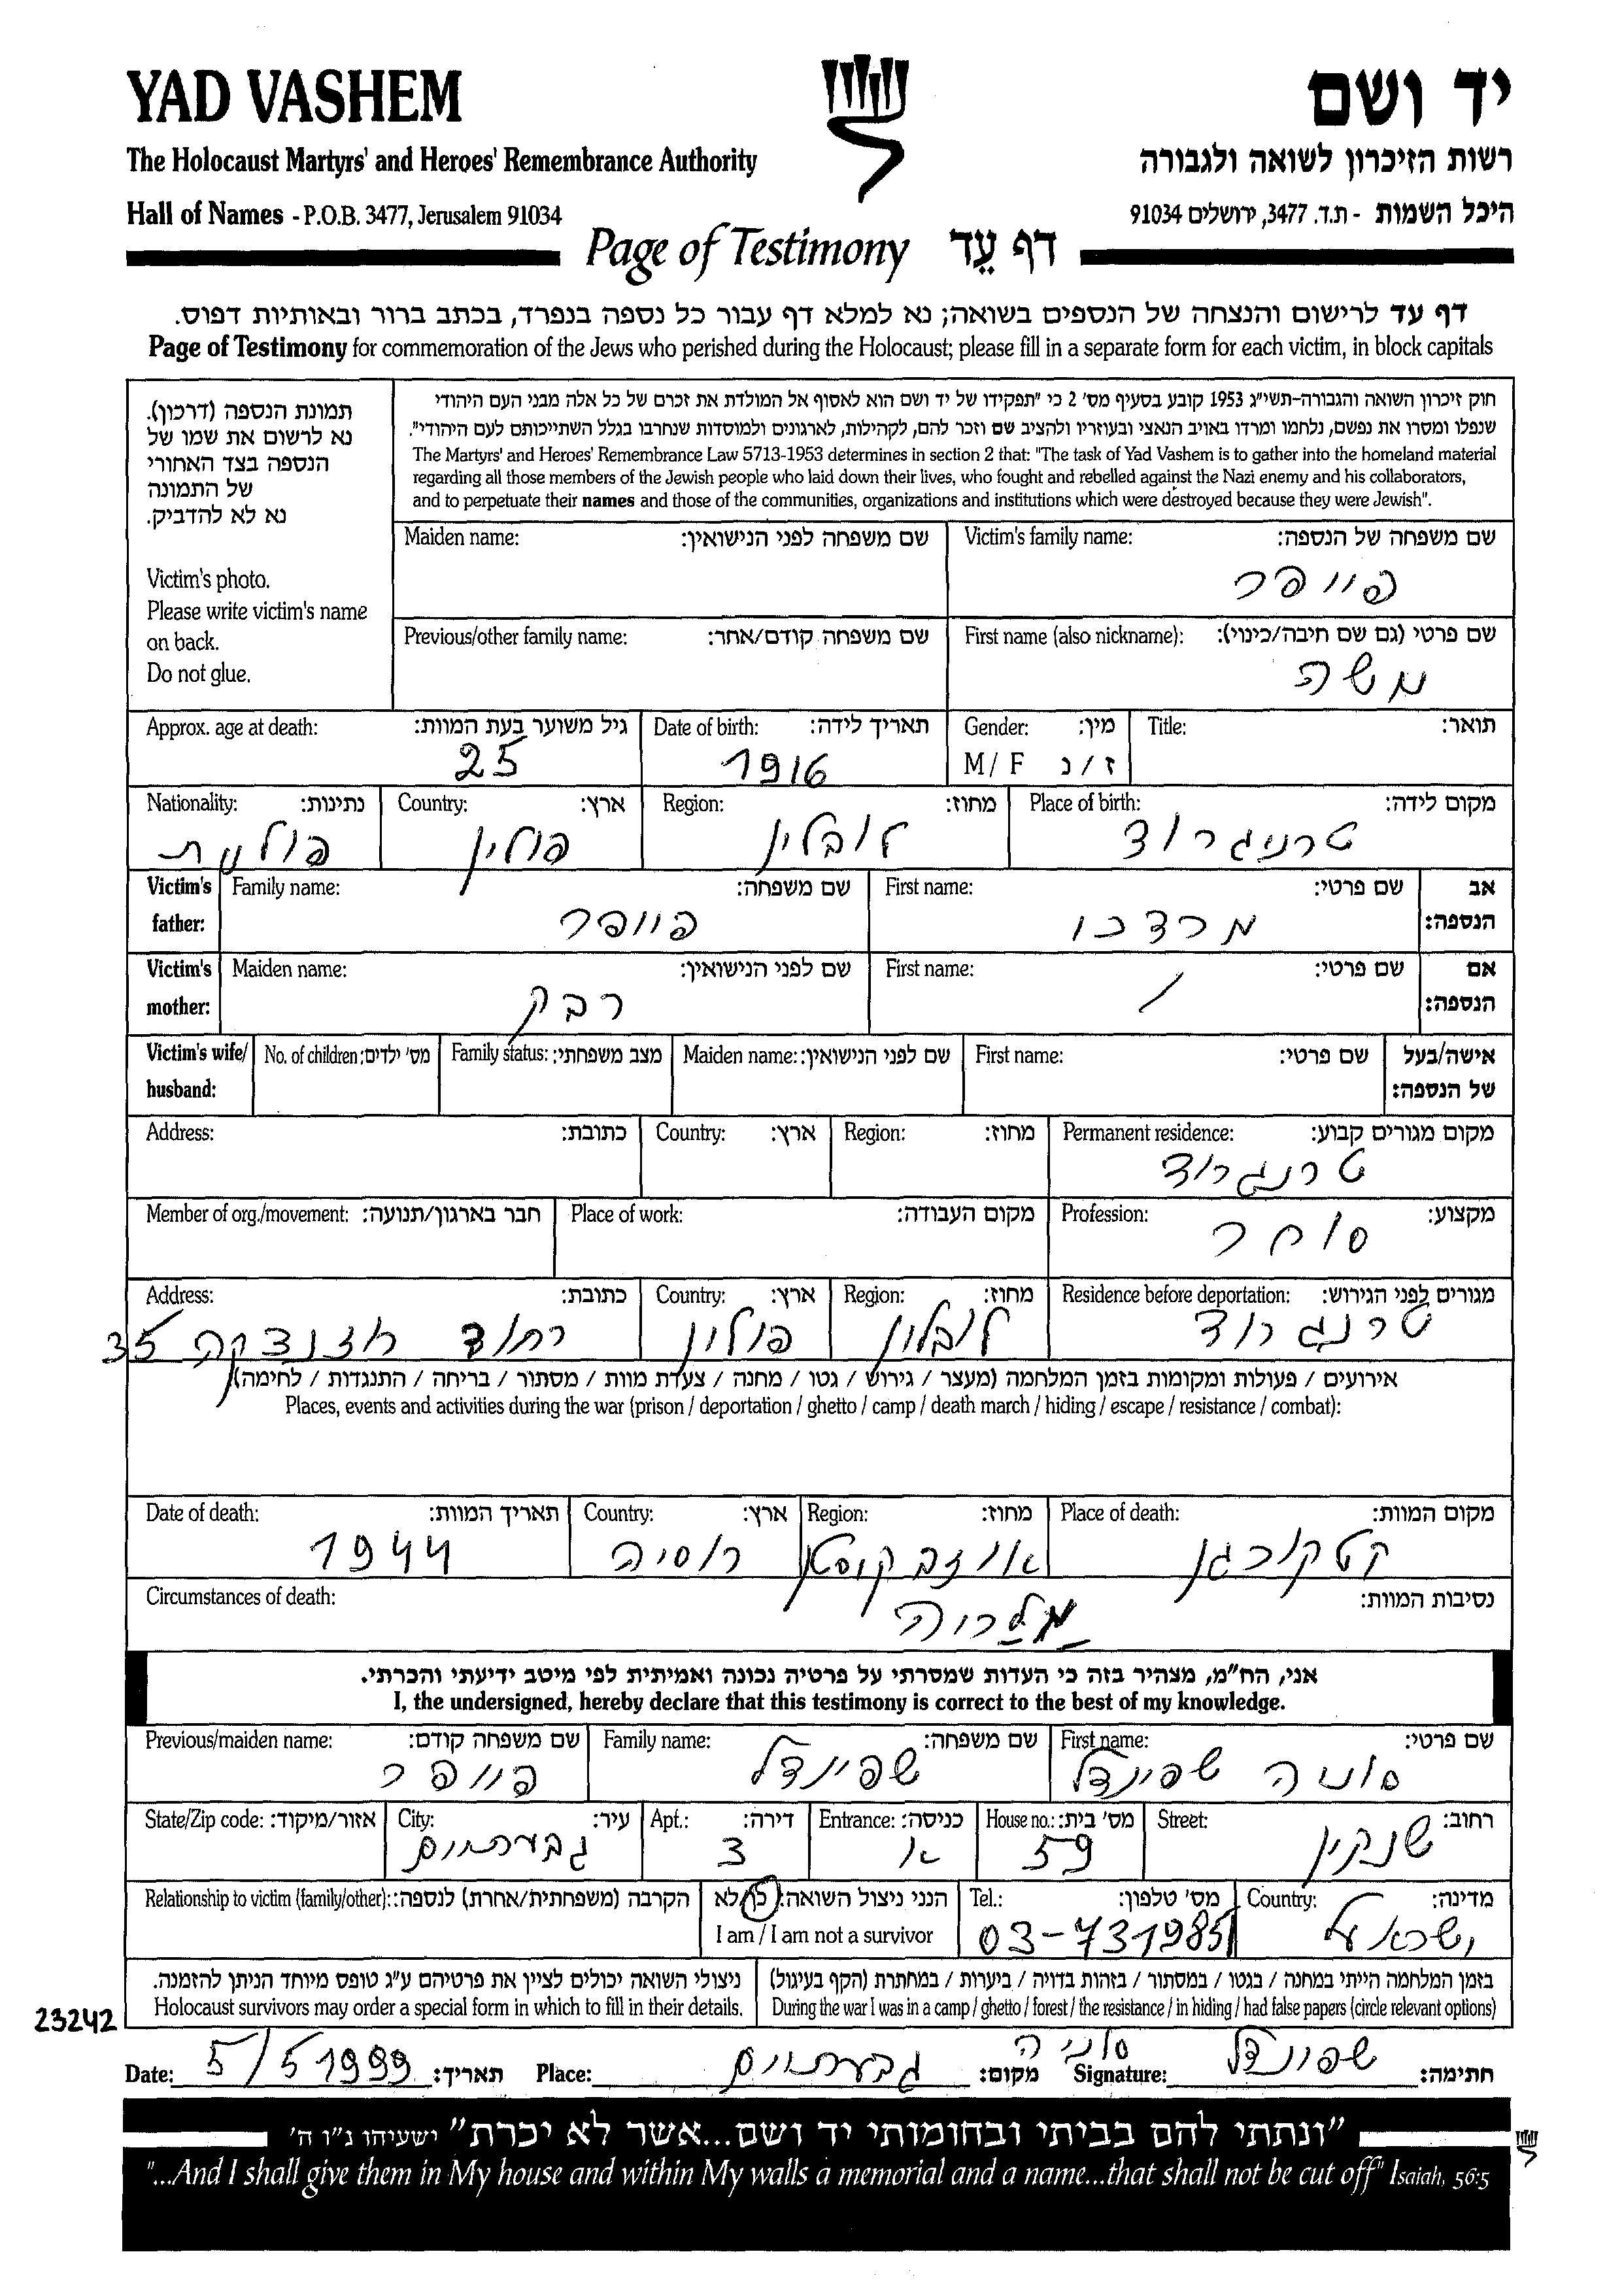 YAD VASHEM
יד ושם
The Holocaust Martyrs' and Heroes' Remembrance Authority
רשות הזיכרון לשואה ולגבורה
Hall of Names - P.O.B. 3477, Jerusalem 91034
היכל השמות - ת.ד. 3477, ירושלים 91034
Page of Testimony דף עֵד
דף עד לרישום והנצחה של הנספים בשואה; נא למלא דף עבור כל נספה בנפרד, בכתב ברור ובאותיות דפוס.
Page of Testimony for commemoration of the Jews who perished during the Holocaust; please fill in a separate form for each victim, in block capitals
תמונת הנספה (דרכון).
נא לרשום את שמו של
הנספה בצד האחורי
של התמונה
נא לא להדביק.
Victim's photo.
Please write victim's name
on back.
Do not glue.
חוק זיכרון השואה והגבורה-תשי"ג 1953 קובע בסעיף מס' 2 כי "תפקידו של יד ושם הוא לאסוף אל המולדת את זכרם של כל אלה מבני העם היהודי
שנפלו ומסרו את נפשם, נלחמו ומרדו באויב הנאצי ובעוזריו ולהציב שם וזכר להם, לקהילות, לארגונים ולמוסדות שנחרבו בגלל השתייכותם לעם היהודי".
The Martyrs' and Heroes' Remembrance Law 5713-1953 determines in section 2 that: "The task of Yad Vashem is to gather into the homeland material
regarding all those members of the Jewish people who laid down their lives, who fought and rebelled against the Nazi enemy and his collaborators,
and to perpetuate their names and those of the communities, organizations and institutions which were destroyed because they were Jewish".
Victim's family name: שם משפחה של הנספה:
פויפר
Maiden name: שם משפחה לפני הנישואין:
First name (also nickname): שם פרטי (גם שם חיבה/כינוי):
משה
Previous/other family name: שם משפחה קודם/אחר:
Title: תואר:
Gender: מין:
M / F ז / נ
Date of birth: תאריך לידה:
1916
Approx. age at death: גיל משוער בעת המוות:
25
Place of birth: מקום לידה:
טרניגרוד
Region: מחוז:
לובלין
Country: ארץ:
פולין
Nationality: נתינות:
פולנית
Victim's father: אב הנספה:
First name: שם פרטי:
מרדכי
Family name: שם משפחה:
פויפר
Victim's mother: אם הנספה:
First name: שם פרטי:
/
Maiden name: שם לפני הנישואין:
רבק
Victim's wife/husband: אישה/בעל של הנספה:
First name: שם פרטי:
Maiden name: שם לפני הנישואין:
Family status: מצב משפחתי:
No. of children: מס' ילדים:
Permanent residence: מקום מגורים קבוע:
טרנגרוד
Region: מחוז:
Country: ארץ:
Address: כתובת:
Profession: מקצוע:
סוחר
Place of work: מקום העבודה:
Member of org./movement: חבר בארגון/תנועה:
Residence before deportation: מגורים לפני הגירוש:
טרנגרוד
Region: מחוז:
לובלין
Country: ארץ:
פולין
Address: כתובת:
רחוב 35
אירועים / פעולות ומקומות בזמן המלחמה (מעצר / גירוש / גטו / מחנה / צעדת מוות / מסתור / בריחה / התנגדות / לחימה):
Places, events and activities during the war (prison / deportation / ghetto / camp / death march / hiding / escape / resistance / combat):
Place of death: מקום המוות:
קטקורגן
Region: מחוז:
אוזבקיסטן
Country: ארץ:
רוסיה
Date of death: תאריך המוות:
1944
Circumstances of death: נסיבות המוות:
מלריה
אני, הח"מ, מצהיר בזה כי העדות שמסרתי על פרטיה נכונה ואמיתית לפי מיטב ידיעתי והכרתי.
I, the undersigned, hereby declare that this testimony is correct to the best of my knowledge.
First name: שם פרטי:
סוניה שפינדל
Family name: שם משפחה:
שפינדל
Previous/maiden name: שם משפחה קודם:
פויפר
Street: רחוב:
שנקין
House no.: מס' בית:
59
Entrance: כניסה:
א
Apt.: דירה:
3
City: עיר:
גבעתיים
State/Zip code: אזור/מיקוד:
Country: מדינה:
ישראל
Tel.: מס' טלפון:
03-7319851
הנני ניצול השואה: כן/לא
I am / I am not a survivor
Relationship to victim (family/other): הקרבה (משפחתית/אחרת) לנספה:
בזמן המלחמה הייתי במחנה / בגטו / במסתור / בזהות בדויה / ביערות / במחתרת (הקף בעיגול)
During the war I was in a camp / ghetto / forest / the resistance / in hiding / had false papers (circle relevant options)
ניצולי השואה יכולים לציין את פרטיהם ע"ג טופס מיוחד הניתן להזמנה.
Holocaust survivors may order a special form in which to fill in their details.
23242
Date: 5/5 1999 תאריך: Place: גבעתיים מקום: Signature: סוניה שפינדל חתימה:
"ונתתי להם בביתי ובחומותי יד ושם...אשר לא יכרת" ישעיהו נ"ו ה'
"...And I shall give them in My house and within My walls a memorial and a name...that shall not be cut off" Isaiah, 56:5